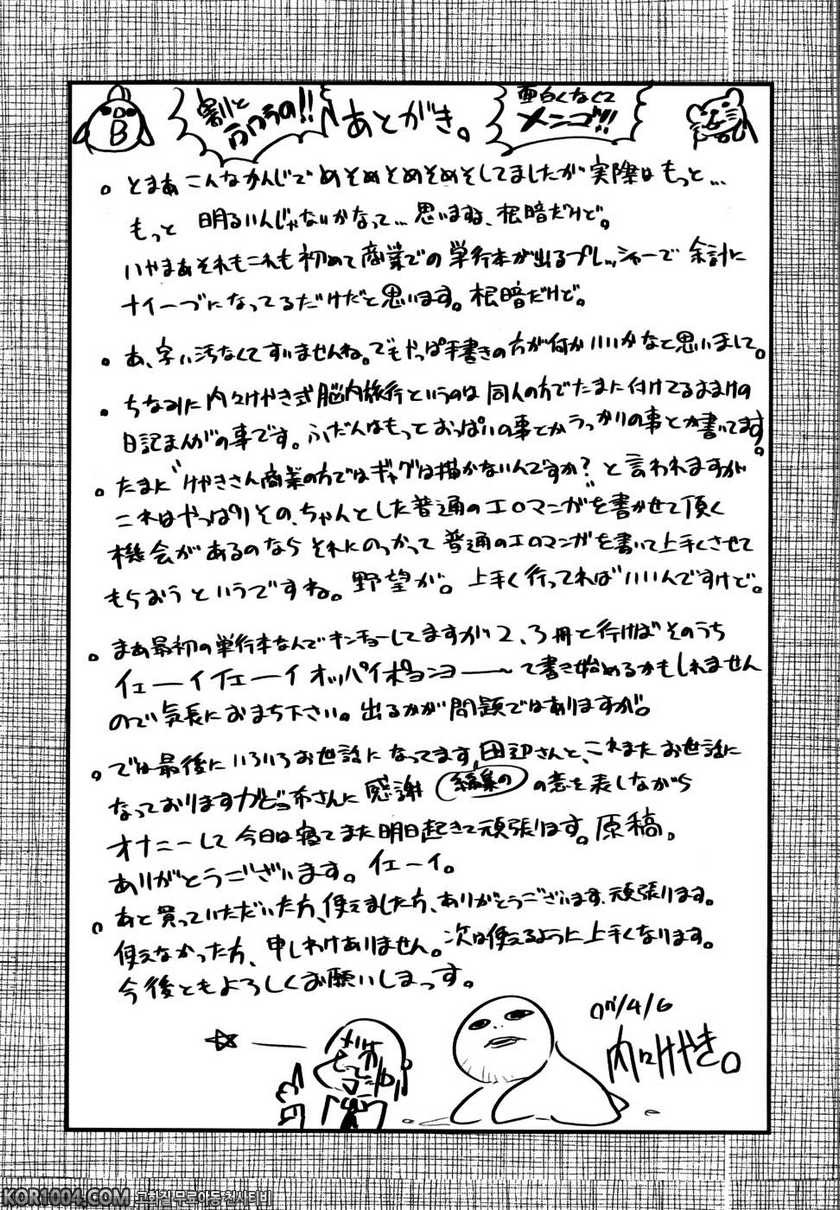 割とテロテロの!!
あとがき。
面白くなくてメンゴ!!!
B
。とまあこんなかんじでめそめそめそめそしてましたが実際はもっと…
もっと 明るいんじゃないかなって…思いますね、根暗だけど。
いやまあそれもこれも初めて商業での単行本が出るプレッシャーで 余計に
ナイーブになってるだけだと思います。根暗だけど。
。あ、字い汚なくてすいませんね。でもやっぱ手書きの方が何かいいかなと思いまして。
。ちなみに内々けやき式脳内旅行というのは同人の方でたまに付けてるおまけの
日記まんがの事です。ふだんはもっとおっぱいの事とかうっかりの事とか書いてます。
。たまに"けやきさん商業の方ではギャグは描かないんですか?"と言われますが
これはやっぱりその、ちゃんとした普通のエロマンガを書かせて頂く
機会があるのならそれにのっかって普通のエロマンガを書いて上手くさせて
もらおうというですね。野望が。上手く行ってればいいんですけど。
。まあ最初の単行本なんでキンチョーしてますが2、3冊と行けばそのうち
イェーイイェーイ オッパイポヨンヨーーー～て書き始めるかもしれません
ので気長におまち下さい。出るかが問題ではありますが。
。では最後にいろいろお世話になってます田辺さんと、これまたお世話に
なっております さんに感謝 編集の の意を表しながら
オナニーして今日は寝てまた明日起きて頑張ります。原稿。
ありがとうございます。イェーイ。
。あと買っていただいた方、使えました方、ありがとうございます、頑張ります。
使えなかった方、申しわけありません。次は使えるように上手くなります。
今後ともよろしくお願いしまっす。
07/4/6
内々けやき。
KOR1004.COM